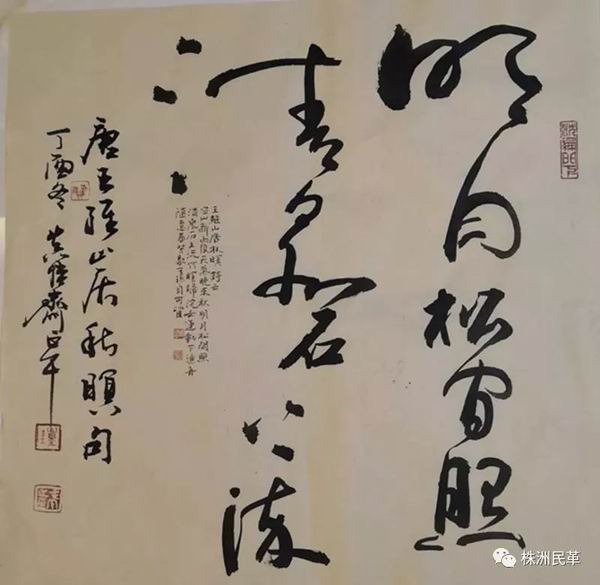 明月松间照
清泉石上流
王維山居秋暝詩云
空山新雨後天氣晚来秋明月松間照
清泉石上流竹喧歸浣女蓮動下漁舟
隨意春芳歇王孫自可留
唐王維山居秋暝句
丁酉冬 齋
株洲民革